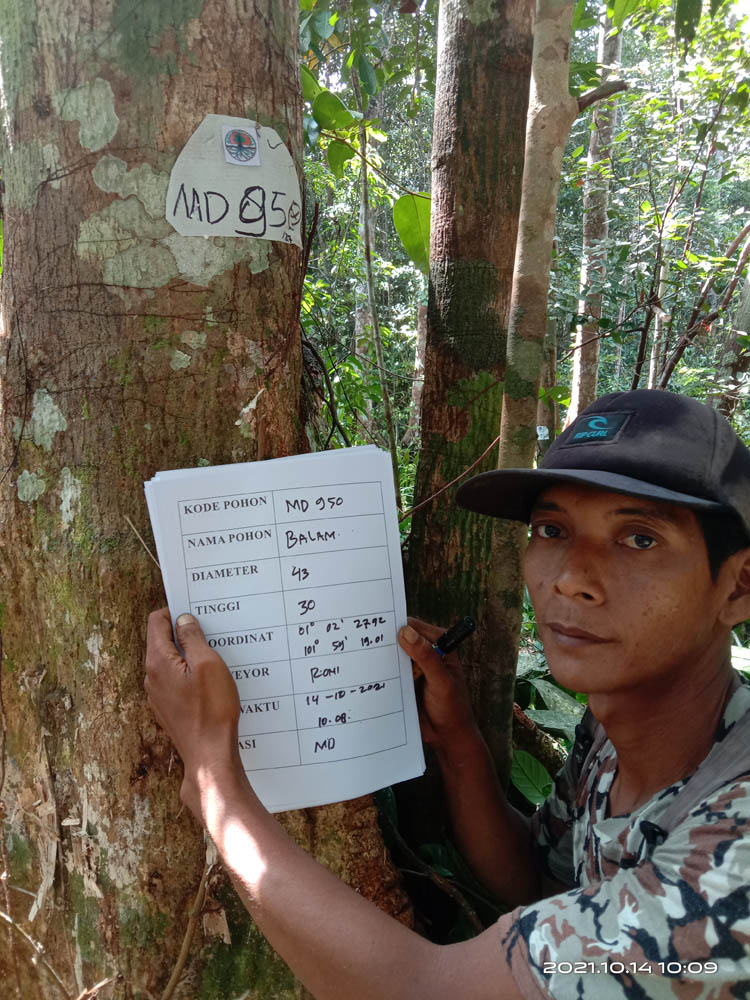 MD 950
RIP CURL
KODE POHON MD 950
NAMA POHON BALAM.
DIAMETER 43
TINGGI 30
OORDINAT 01° 02' 27.92
101° 59' 19.01
VEYOR ROMI
WAKTU 14-10-2021
10.08.
ASI MD
2021.10.14 10:09